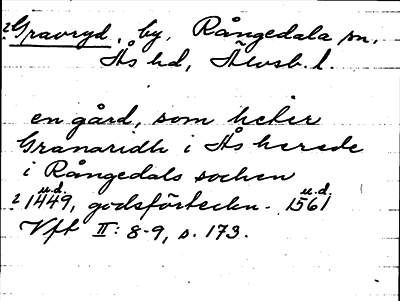 ? Gravryd, by, Rångedala sn,
Ås hd, Älvsb. l.
en gård, som heter
Granaridh i Ås herede
i Rångedals sochen
? 1449 u.d., godsförteckn. 1561 u.d.
Vft II: 8-9, s. 173.